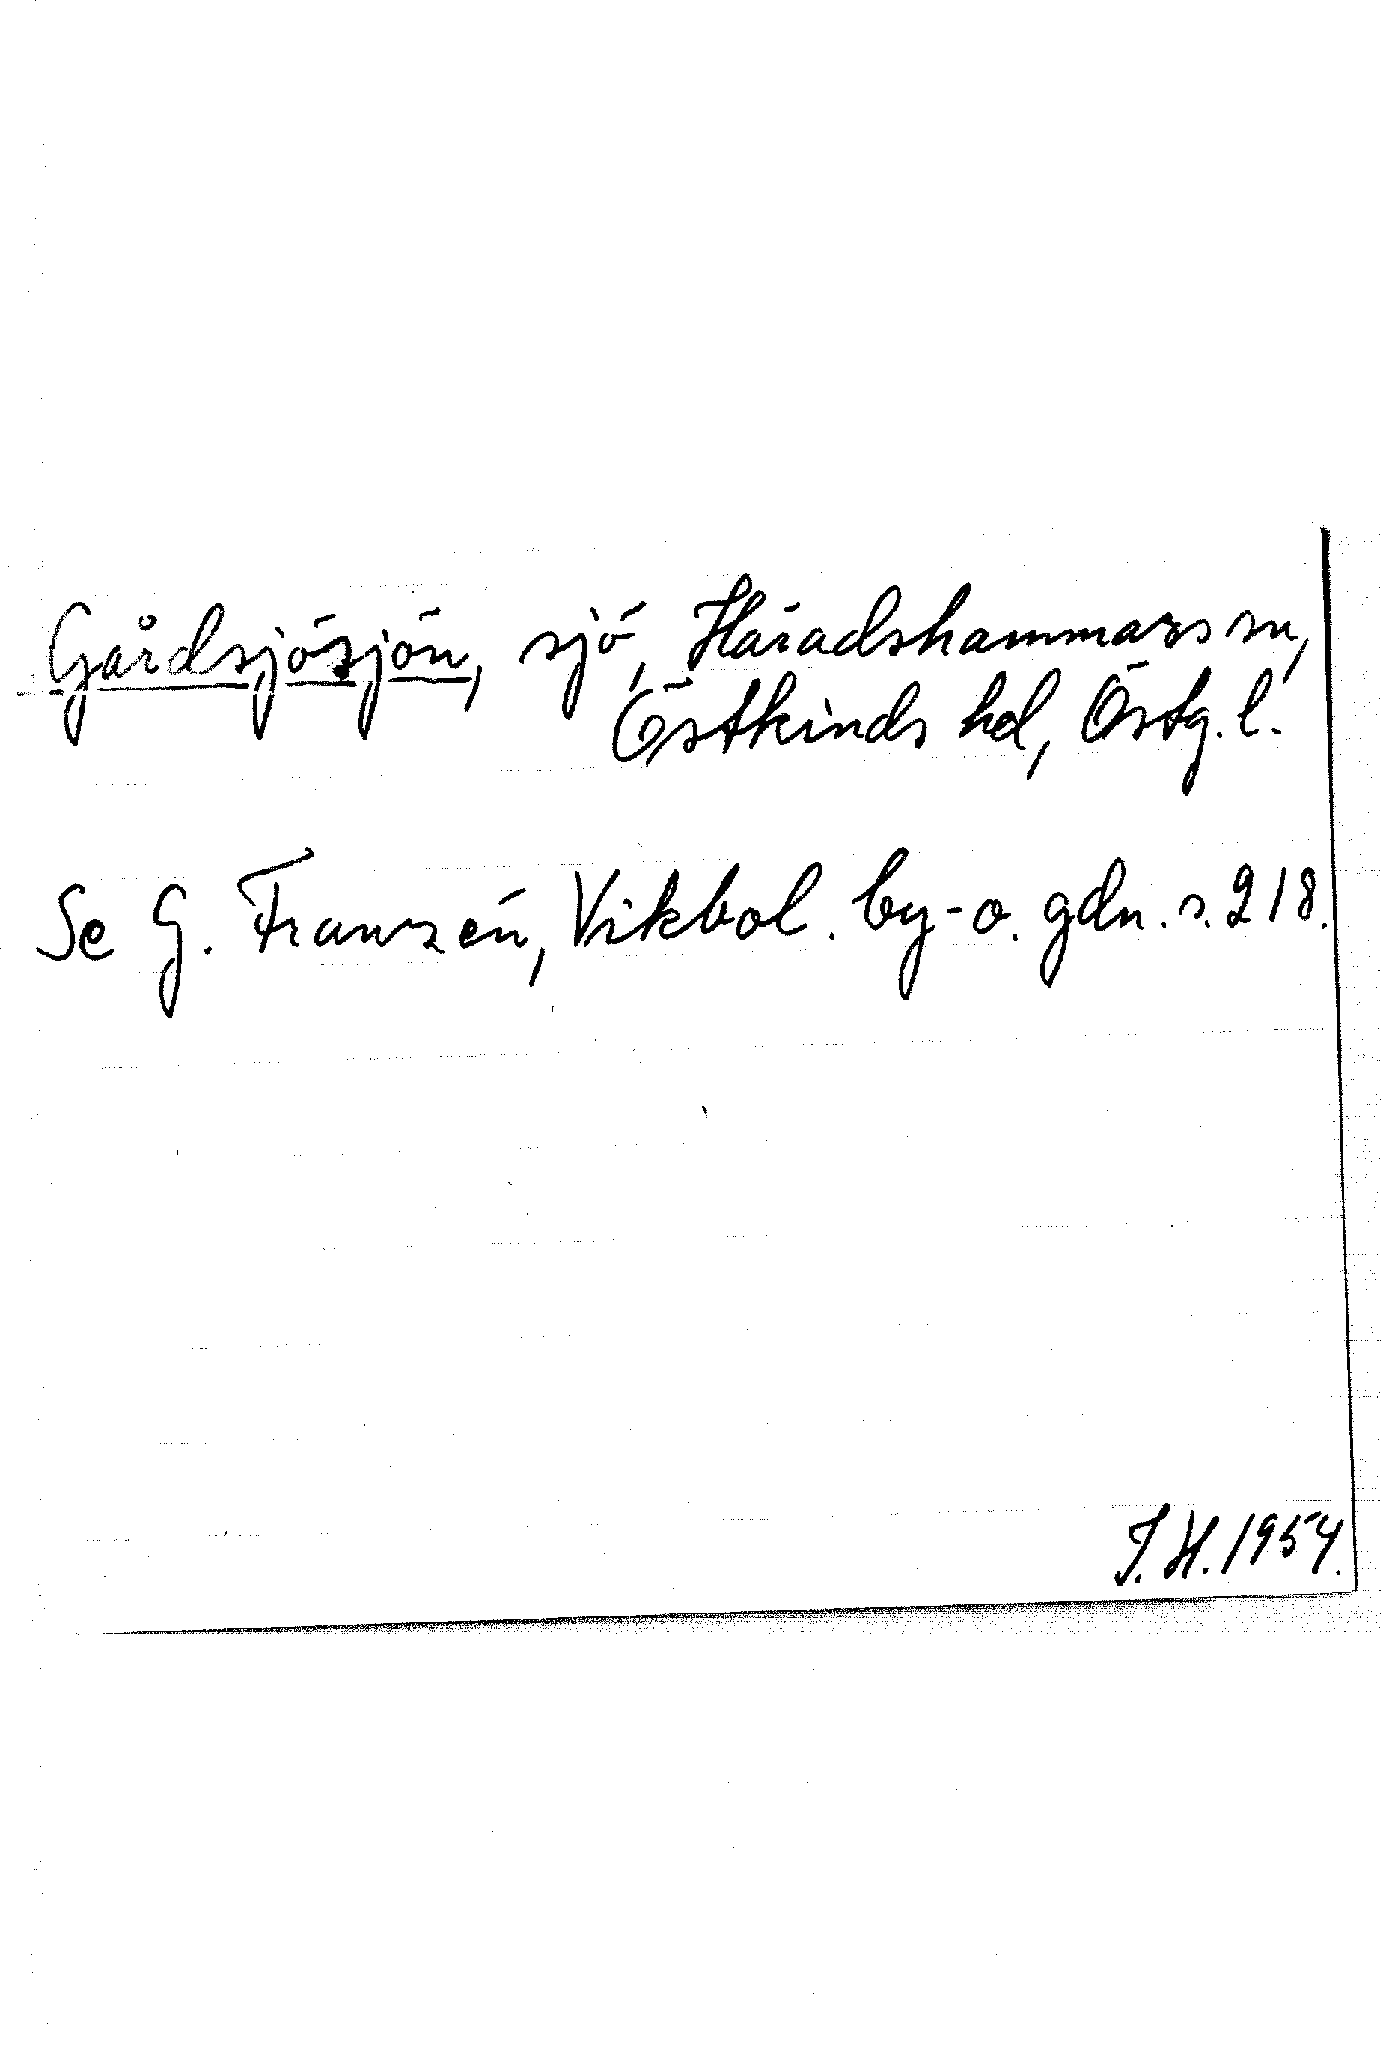 Gårdsjösjön, sjö, Häradshammars sn,
Östkinds hd, Östg. l.
Se G. Franzén, Vikbol. by- o. gdn. s. 218.
I. H. 1954.